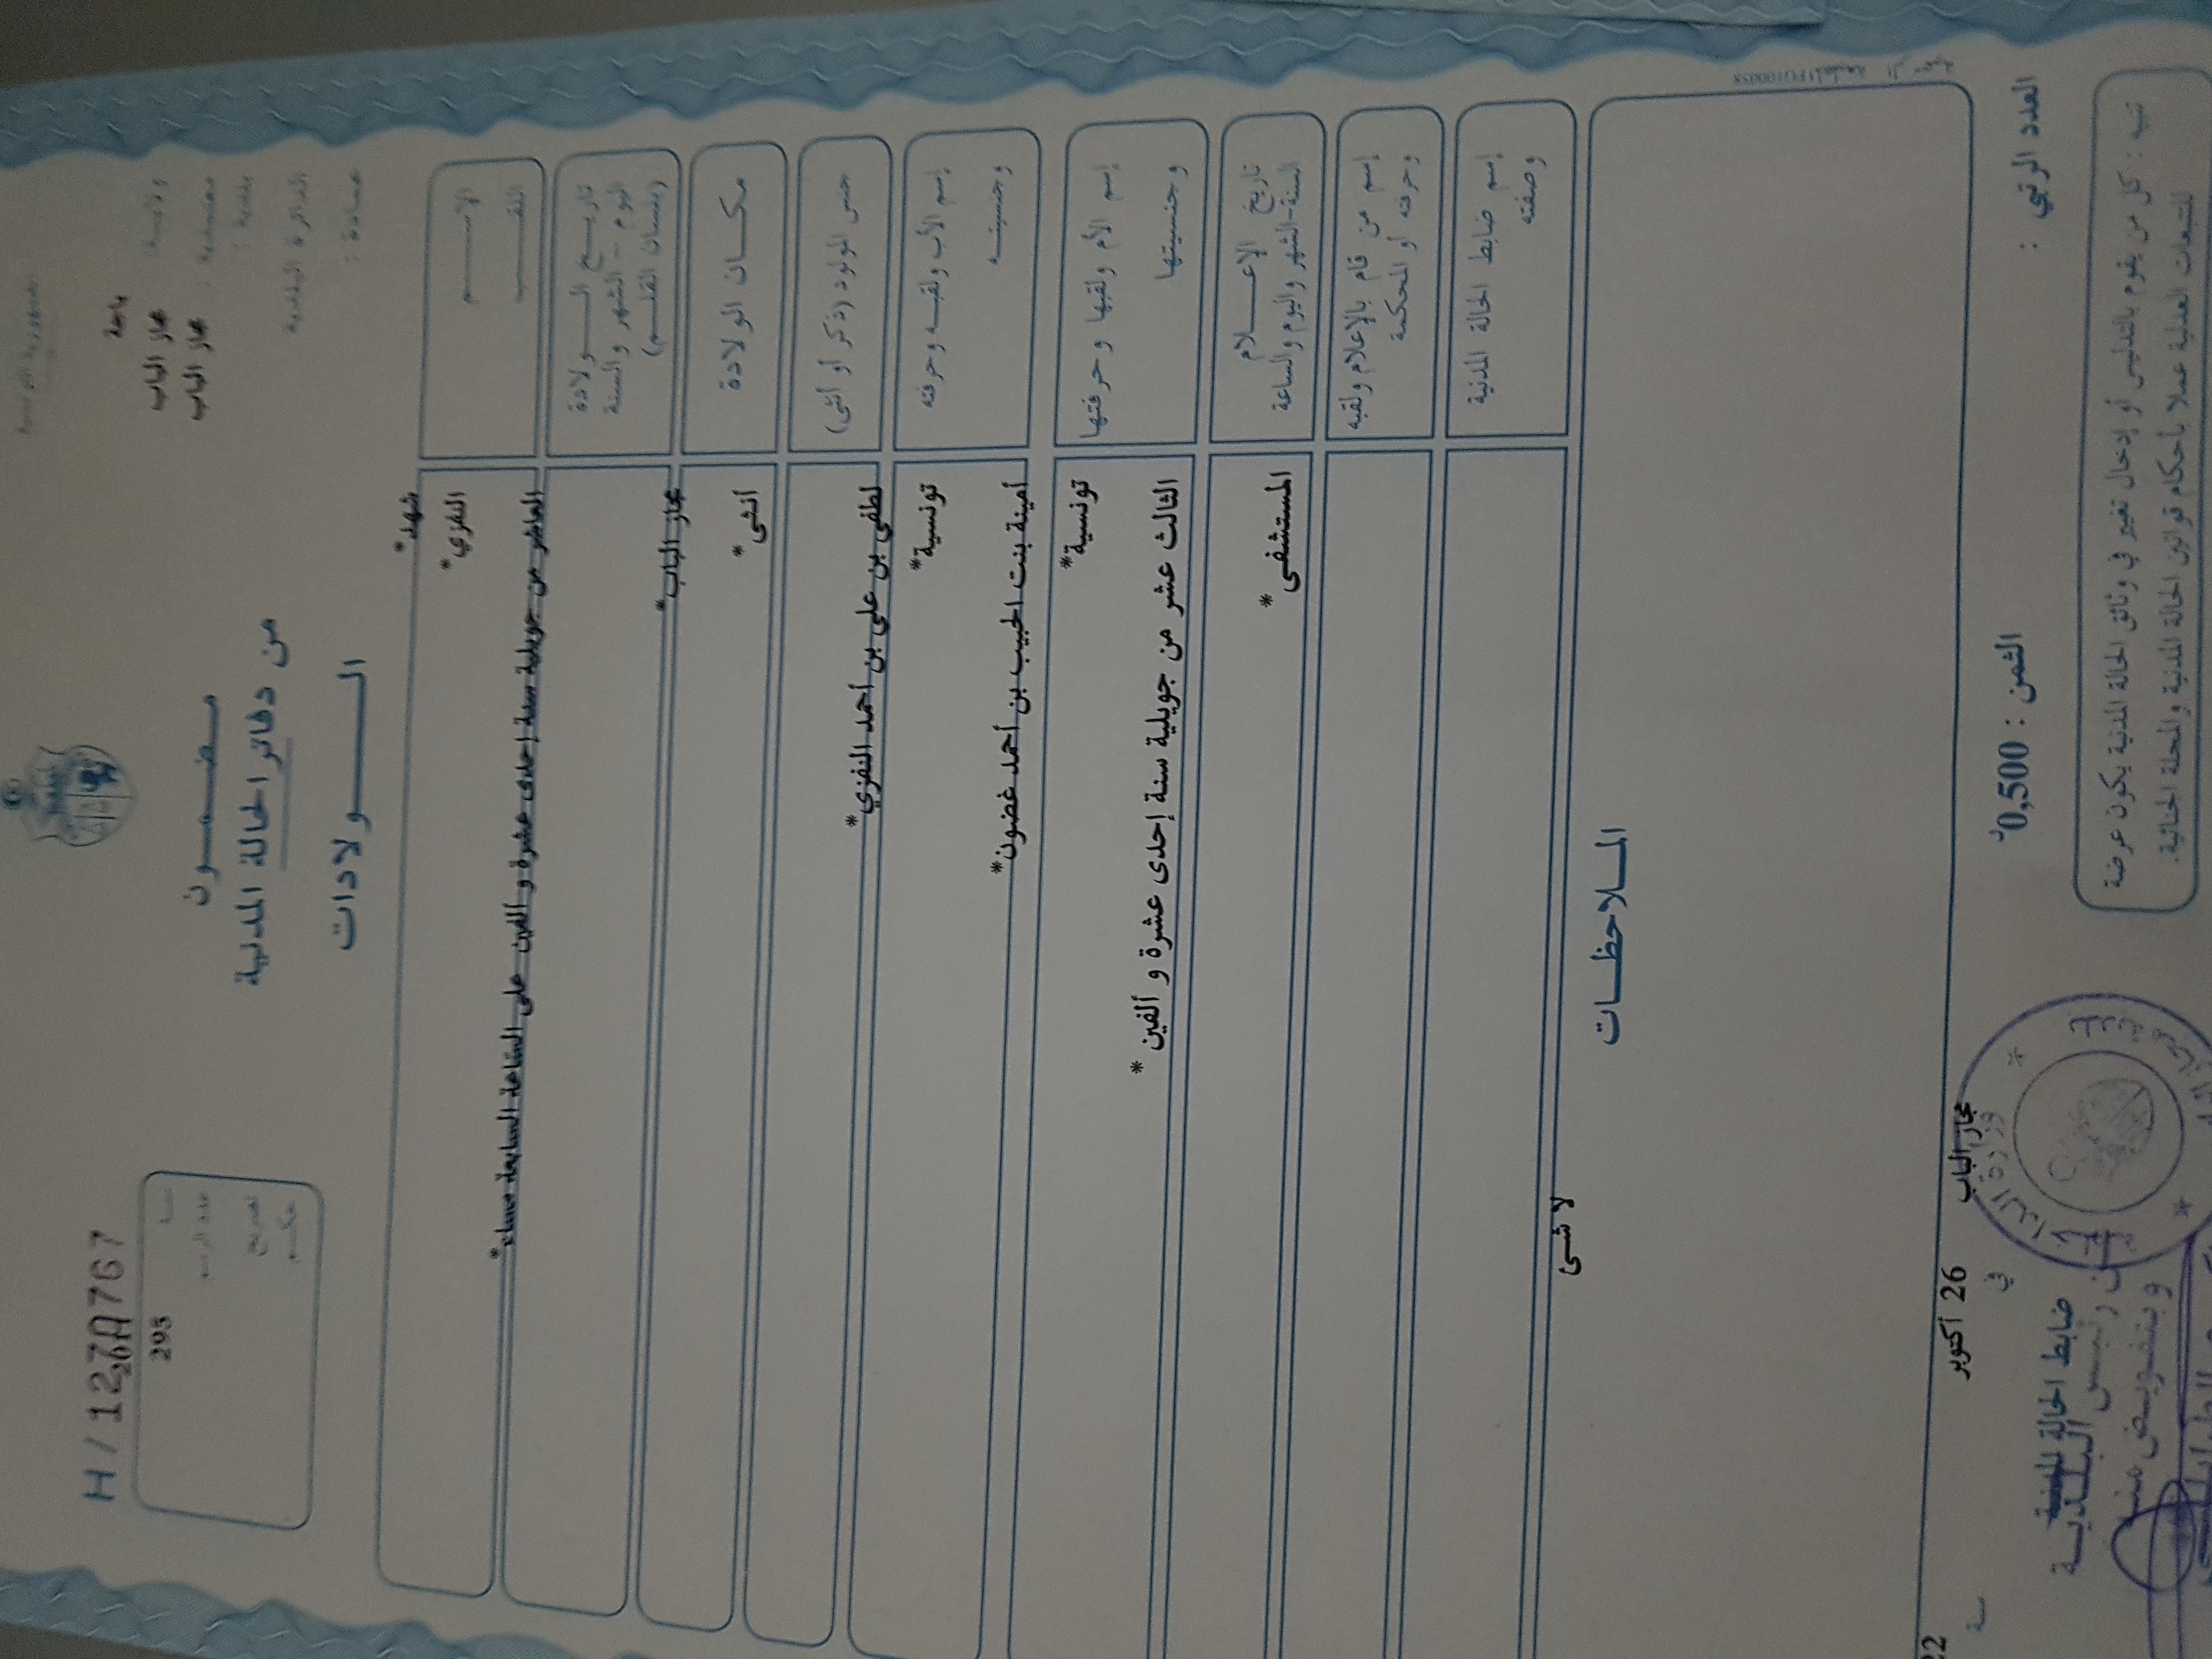 الجمهورية التونسية
H / 127A767
ولايـــة
باجة
معتمدية :
مجاز الباب
بلدية :
مجاز الباب
الدائرة البلدية
عمــادة :
سنـــة
2011
عدد الرسم
295
تصريح
حكــم
مـضـمـــون
من دفاتر الحالة المدنية
الـــــولادات
الإســــــم
شهد*
اللقـــــب
النفزي*
تاريــــخ الـــــولادة
اليوم - الشهر والسنة
(بلسان القلـــم)
العاشر من جويلية سنة إحدى عشرة و ألفين على الساعة السابعة مساء*
مكــان الولادة
مجاز الباب*
جنس المولود (ذكر أو أنثى)
أنثى *
إسم الأب ولقبـه وحرفته
لطفي بن علي بن أحمد النفزي*
وجنسيتـــه
تونسية*
إسم الأم ولقبها وحرفتها
أمينة بنت الحبيب بن أحمد غضون*
وجنسيتها
تونسية*
تاريخ الإعـــــلام
السنة-الشهر واليوم والساعة
الثالث عشر من جويلية سنة إحدى عشرة و ألفين *
إسم من قام بالإعلام ولقبه
وحرفته أو المحكمة
المستشفى *
إسم ضابط الحالة المدنية
وصفته
الملاحظــات
لا شـــئ
مجاز الباب
في
26 أكتوبر
سنة
22
العدد الرتبي :
الثمن : 0,500د
ضابط الحالة المدنية
عن رئيس البلدية
و بتفويض منه
تنبيه : كل من يقوم بالتدليس أو إدخال تغيير في وثائق الحالة المدنية يكون عرضة
للتتبعات العدلية عملا بأحكام قوانين الحالة المدنية والمجلة الجنائية.